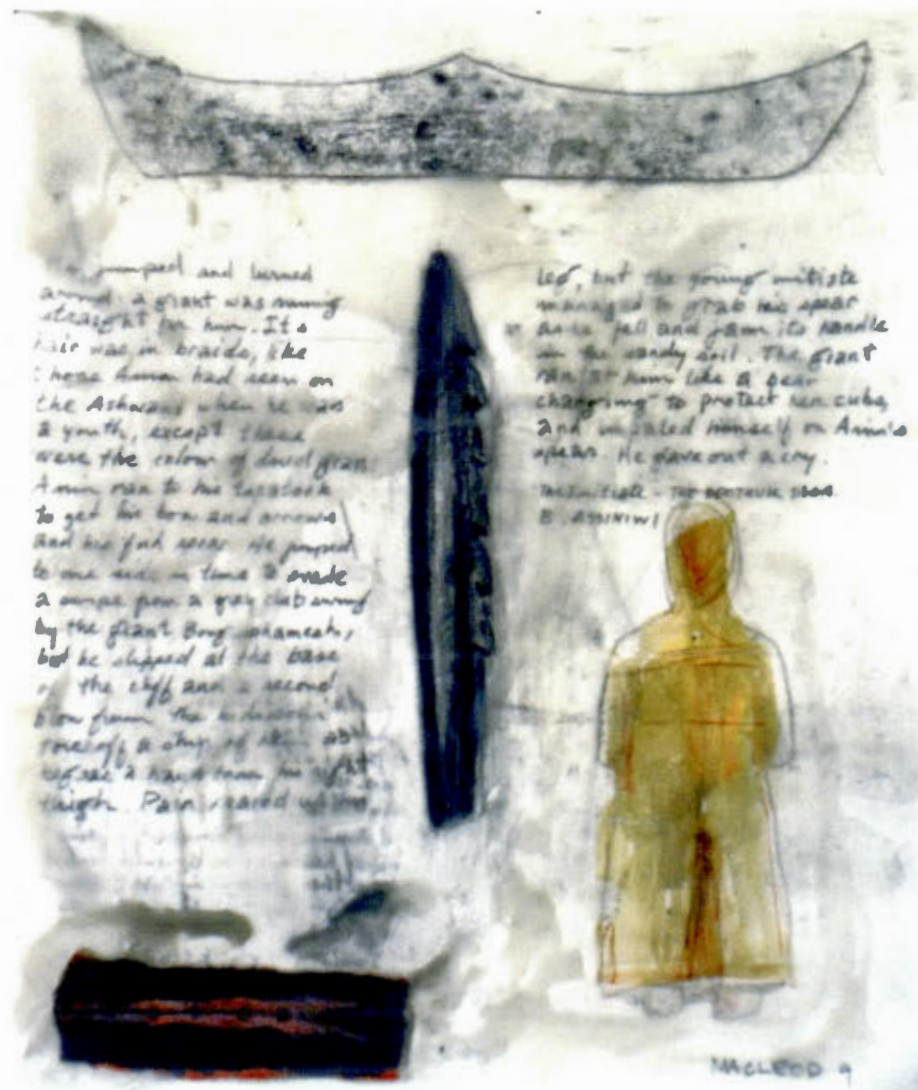 jumped and turned
around. a giant was running
straight for him. Its
hair was in braids, like
those Anin had seen on
the Ashwans when he was
a youth, except these
were the colour of dried grass.
Anin ran to his tapatook
to get his bow and arrows
and his fish spear. He jumped
to one side in time to evade
a swipe from a grey club swung
by the giant Bouguishamesh,
but he slipped at the base
of the cliff and a second
blow from the
tore off a strip of skin
a hand from his right
thigh. Pain seared
leg, but the young initiate
managed to grab his spear
as he fell and jam its handle
in the sandy soil. The giant
ran at him like a bear
charging to protect her cubs,
and impaled himself on Anin's
spear. He gave out a cry.
The Initiate - THE BEOTHUK SAGA
B. ASSINIWI
MACLEOD 9